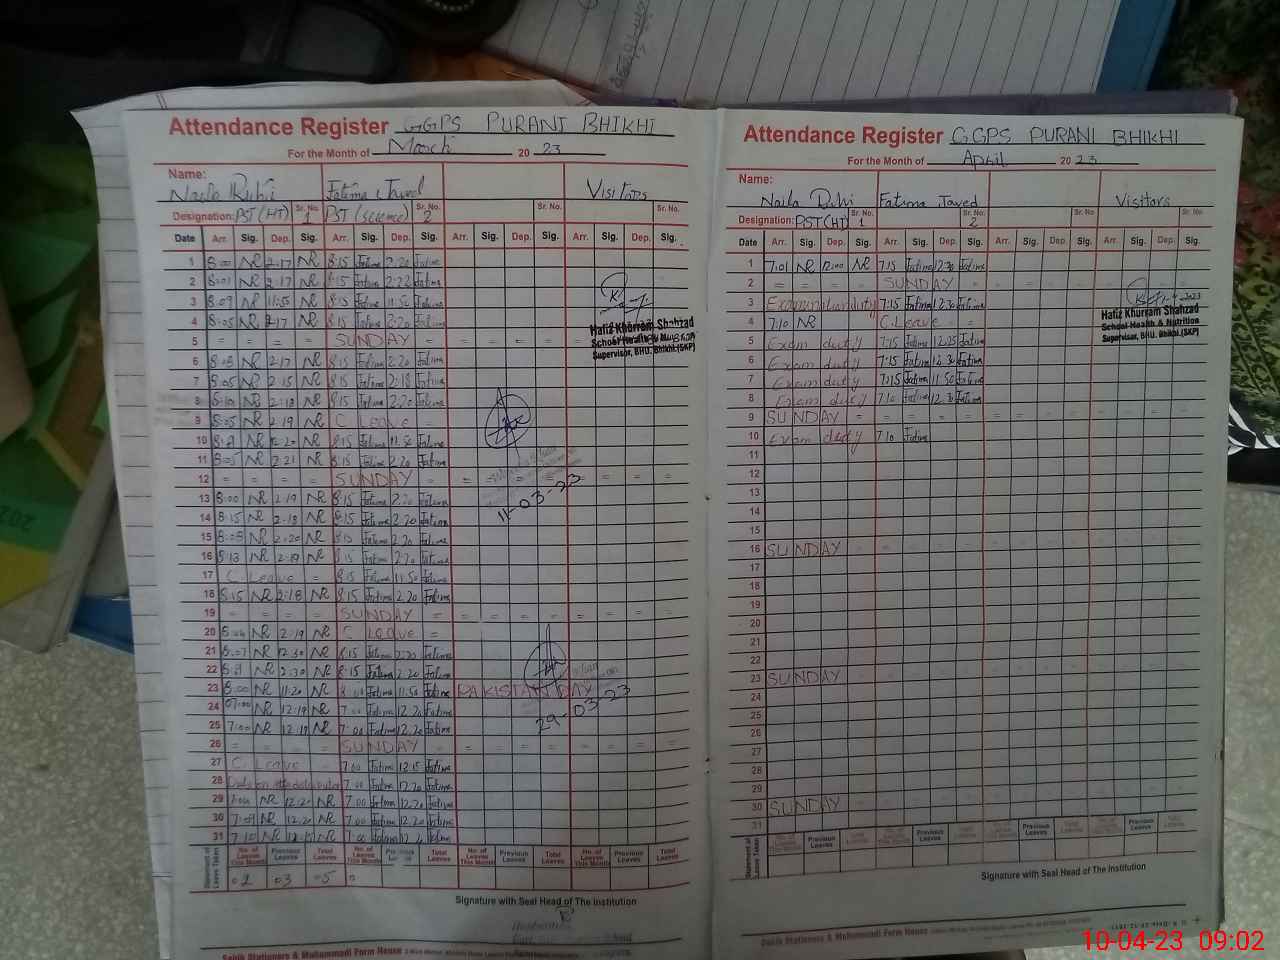 Attendance Register GGPS PURANI BHIKHI
For the Month of March 20 23
Name:
Naila Ruhi Fatima Javed Visitors
Designation: PST(HT) Sr. No. 1 PST (Science) Sr. No. 2 Sr. No. Sr. No.
Date Arr. Sig. Dep. Sig. Arr. Sig. Dep. Sig. Arr. Sig. Dep. Sig. Arr. Sig. Dep. Sig.
1 8:00 NR 2:17 NR 8:15 Fatima 2:20 Fatima
2 8:01 NR 2:17 NR 8:15 Fatima 2:22 Fatima
3 8:09 NR 11:55 NR 8:15 Fatima 11:50 Fatima
4 8:05 NR 2:17 NR 8:15 Fatima 2:20 Fatima
Hafiz Khurram Shahzad
School Health &
Supervisor, BHU. Bhikhi.(SKP)
5 = = = = SUNDAY = = = =
6 8:03 NR 2:17 NR 8:15 Fatima 2:20 Fatima
7 8:05 NR 2:15 NR 8:15 Fatima 2:18 Fatima
8 8:10 NR 2:18 NR 8:15 Fatima 2:20 Fatima
9 8:05 NR 2:19 NR C Leave =
10 NR 12:20 NR 8:15 Fatima 11:50 Fatima
11 8:05 NR 2:21 NR 8:15 Fatima 2:20 Fatima
12 = = = = SUNDAY = = = = = = = =
11-03-23
13 8:00 NR 2:19 NR 8:15 Fatima 2:20 Fatima
14 8:15 NR 2:18 NR 8:15 Fatima 2:20 Fatima
15 NR 2:20 NR Fatima 2:20 Fatima
16 8:13 NR 2:19 NR 8:15 Fatima 2:20 Fatima
17 C. Leave = 8:15 Fatima 11:50 Fatima
18 8:15 NR 2:18 NR 8:15 Fatima 2:20 Fatima
19 = = = = SUNDAY = = = = = = = =
20 NR 2:19 NR C Leave =
21 NR 12:30 NR 8:15 Fatima 2:20 Fatima
22 NR 2:30 NR 8:15 Fatima 2:20 Fatima
23 8:00 NR 11:20 NR Fatima 11:50 Fatima PAKISTAN DAY
24 07:00 NR 12:19 NR 7:00 Fatima 12:20 Fatima
29-03-23
25 7:00 NR 12:19 NR 7:00 Fatima 12:20 Fatima
26 = = = = SUNDAY = = = = = = = =
27 C. Leave - 7:00 Fatima 12:15 Fatima
28 7:00 Fatima 12:20 Fatima
29 NR 12:20 NR 7:00 Fatima 12:20 Fatima
30 7:09 NR 12:20 NR 7:00 Fatima 12:20 Fatima
31 7:10 NR NR 7:00 Fatima Fatima
Statement of Leave Taken No. of Leaves This Month Previous Leaves Total Leaves No. of Leaves This Month Previous Leaves Total Leaves No. of Leaves This Month Previous Leaves Total Leaves No. of Leaves This Month Previous Leaves Total Leaves
02 03 05
Signature with Seal Head of The Institution
Sabik Stationers & Muhammadi Form House
Attendance Register GGPS PURANI BHIKHI
For the Month of April 20 23
Name:
Naila Ruhi Fatima Javed Visitors
Designation: PST(HT) Sr. No. 1 Sr. No. 2 Sr. No. Sr. No.
Date Arr. Sig. Dep. Sig. Arr. Sig. Dep. Sig. Arr. Sig. Dep. Sig. Arr. Sig. Dep. Sig.
1 7:01 NR 12:00 NR 7:15 Fatima 12:30 Fatima
2 = = = = SUNDAY - - - - - -
3 Examination duty 7:15 Fatima 12:30 Fatima
4 7:10 NR C. Leave =
Hafiz Khurram Shahzad
School Health & Nutrition
Supervisor, BHU. Bhikhi.(SKP)
5 Exam duty 7:15 Fatima 12:25 Fatima
6 Exam duty 7:15 Fatima 12:30 Fatima
7 Exam duty 7:15 Fatima 11:50 Fatima
8 Exam duty 7:10 Fatima 12:30 Fatima
9 SUNDAY = = = = = = = = = = =
10 Exam duty 7:10 Fatima
11
12
13
14
15
16 SUNDAY
17
18
19
20
21
22
23 SUNDAY
24
25
26
27
28
29
30 SUNDAY
31
Statement of Leave Taken No. of Leaves This Month Previous Leaves Total Leaves No. of Leaves This Month Previous Leaves Total Leaves No. of Leaves This Month Previous Leaves Total Leaves No. of Leaves This Month Previous Leaves Total Leaves
Signature with Seal Head of The Institution
Sabik Stationers & Muhammadi Form House
10-04-23 09:02